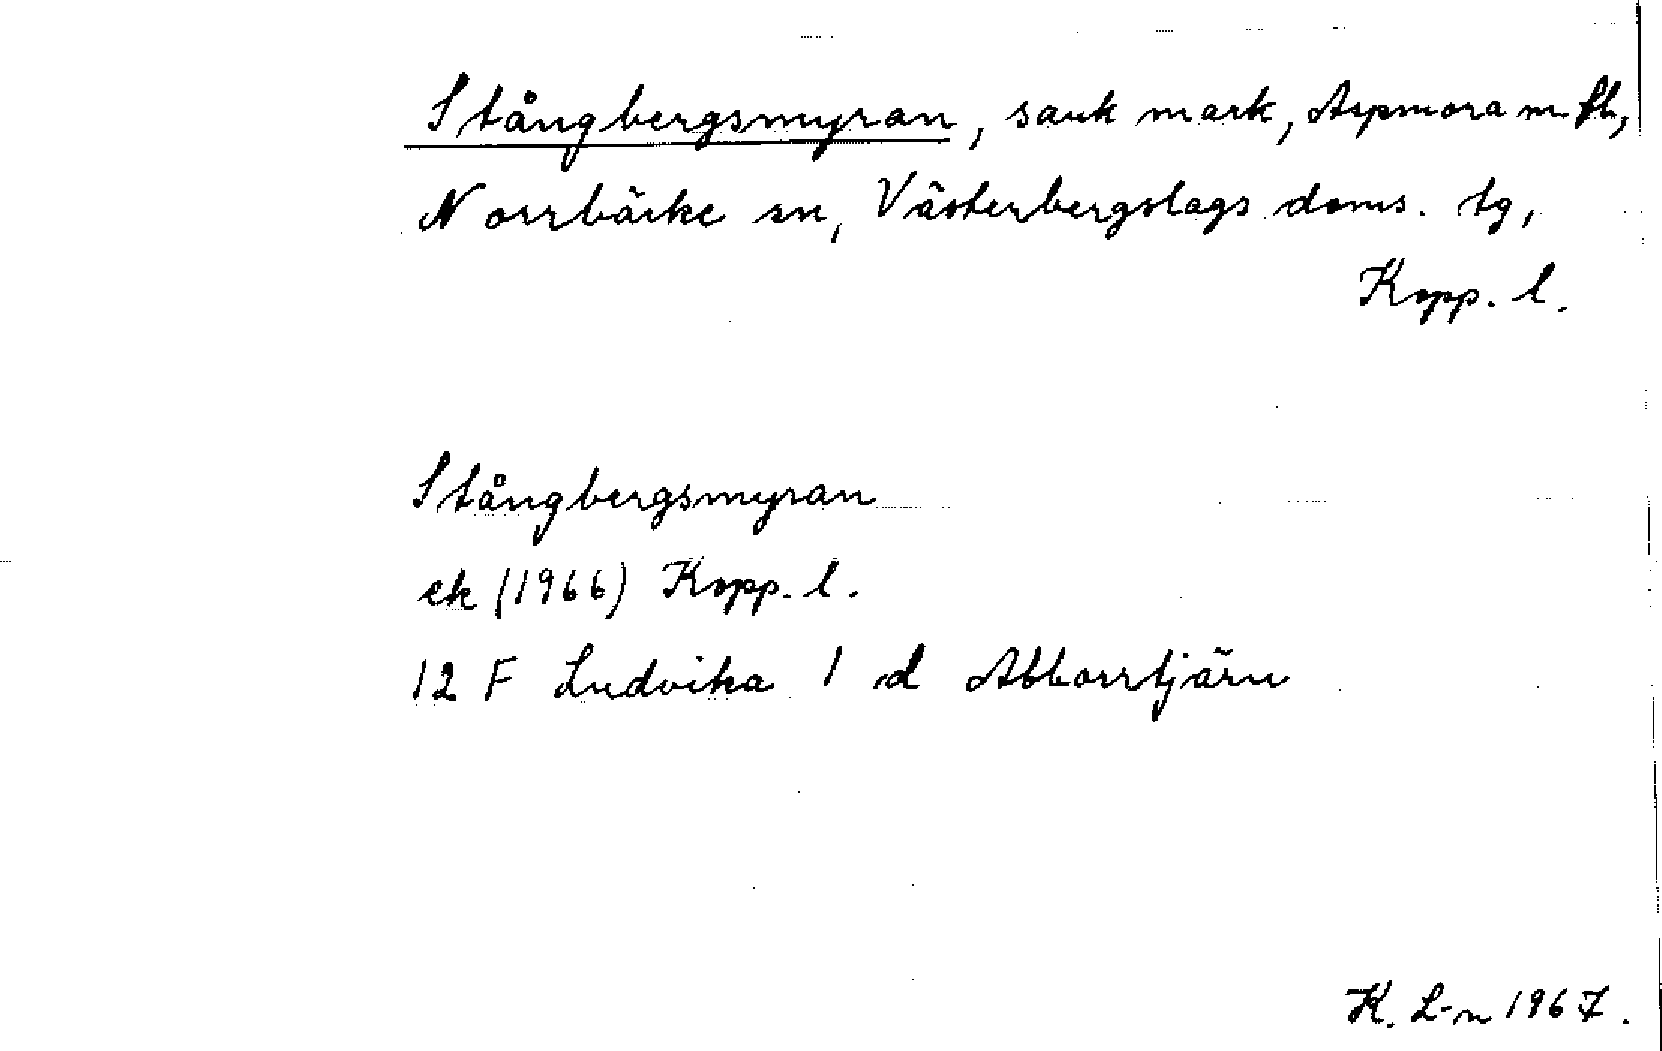 Stångbergsmyran, sank mark, Aspmora m. fl.,
Norrbärke sn, Västerbergslags doms. tg,
Kopp. l.
Stångbergsmyran
ek (1966) Kopp. l.
12 F Ludvika 1 d Abborrtjärn
K. L-n 1967.